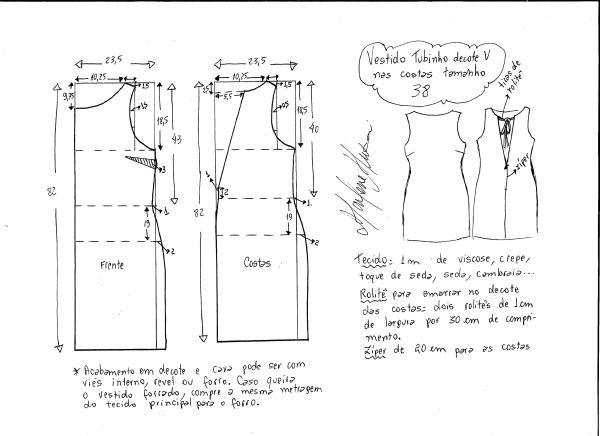 Vestido Tubinho decote V
nas costas tamanho
38
tiras de
rolitê
zíper
23,5
10,25
1,5
9,75
1,5
18,5
43
3
82
1
19
2
Frente
23,5
10,25
1,5
5,5
18,5
40
2
82
1
19
2
Costas
Tecido: 1m de viscose, crepe,
toque de seda, seda, cambraia...
Rolitê para amarrar no decote
das costas: dois rolitês de 1cm
de largura por 30 cm de compri-
mento.
Zíper de 20 cm para as costas
* Acabamento em decote e cava pode ser com
viés interno, revel ou forro. Caso queira
o vestido forrado, compre a mesma metragem
do tecido principal para o forro.